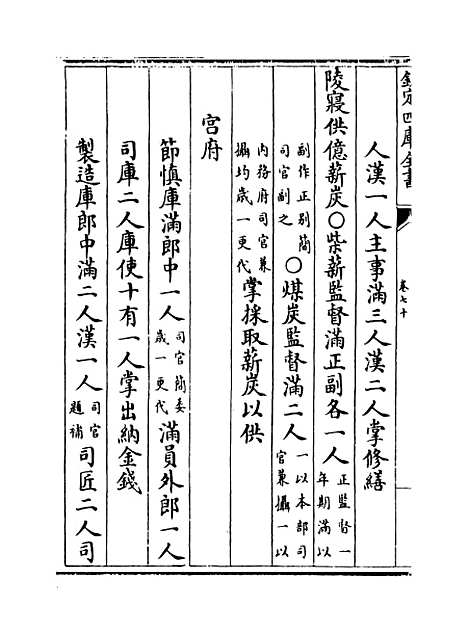 欽定四庫全書
卷七十
人漢一人主事滿三人漢二人掌修繕
陵寢供億薪炭○柴薪監督滿正副各一人正監督一年期滿以
副作正别簡司官副之○煤炭監督滿二人一以本部司官兼攝一以
内務府司官兼攝均歲一更代掌採取薪炭以供
宫府
節慎庫滿郎中一人司官簡委歲一更代滿員外郎一人
司庫二人庫使十有一人掌出納金錢
製造庫郎中滿二人漢一人司官題補司匠二人司